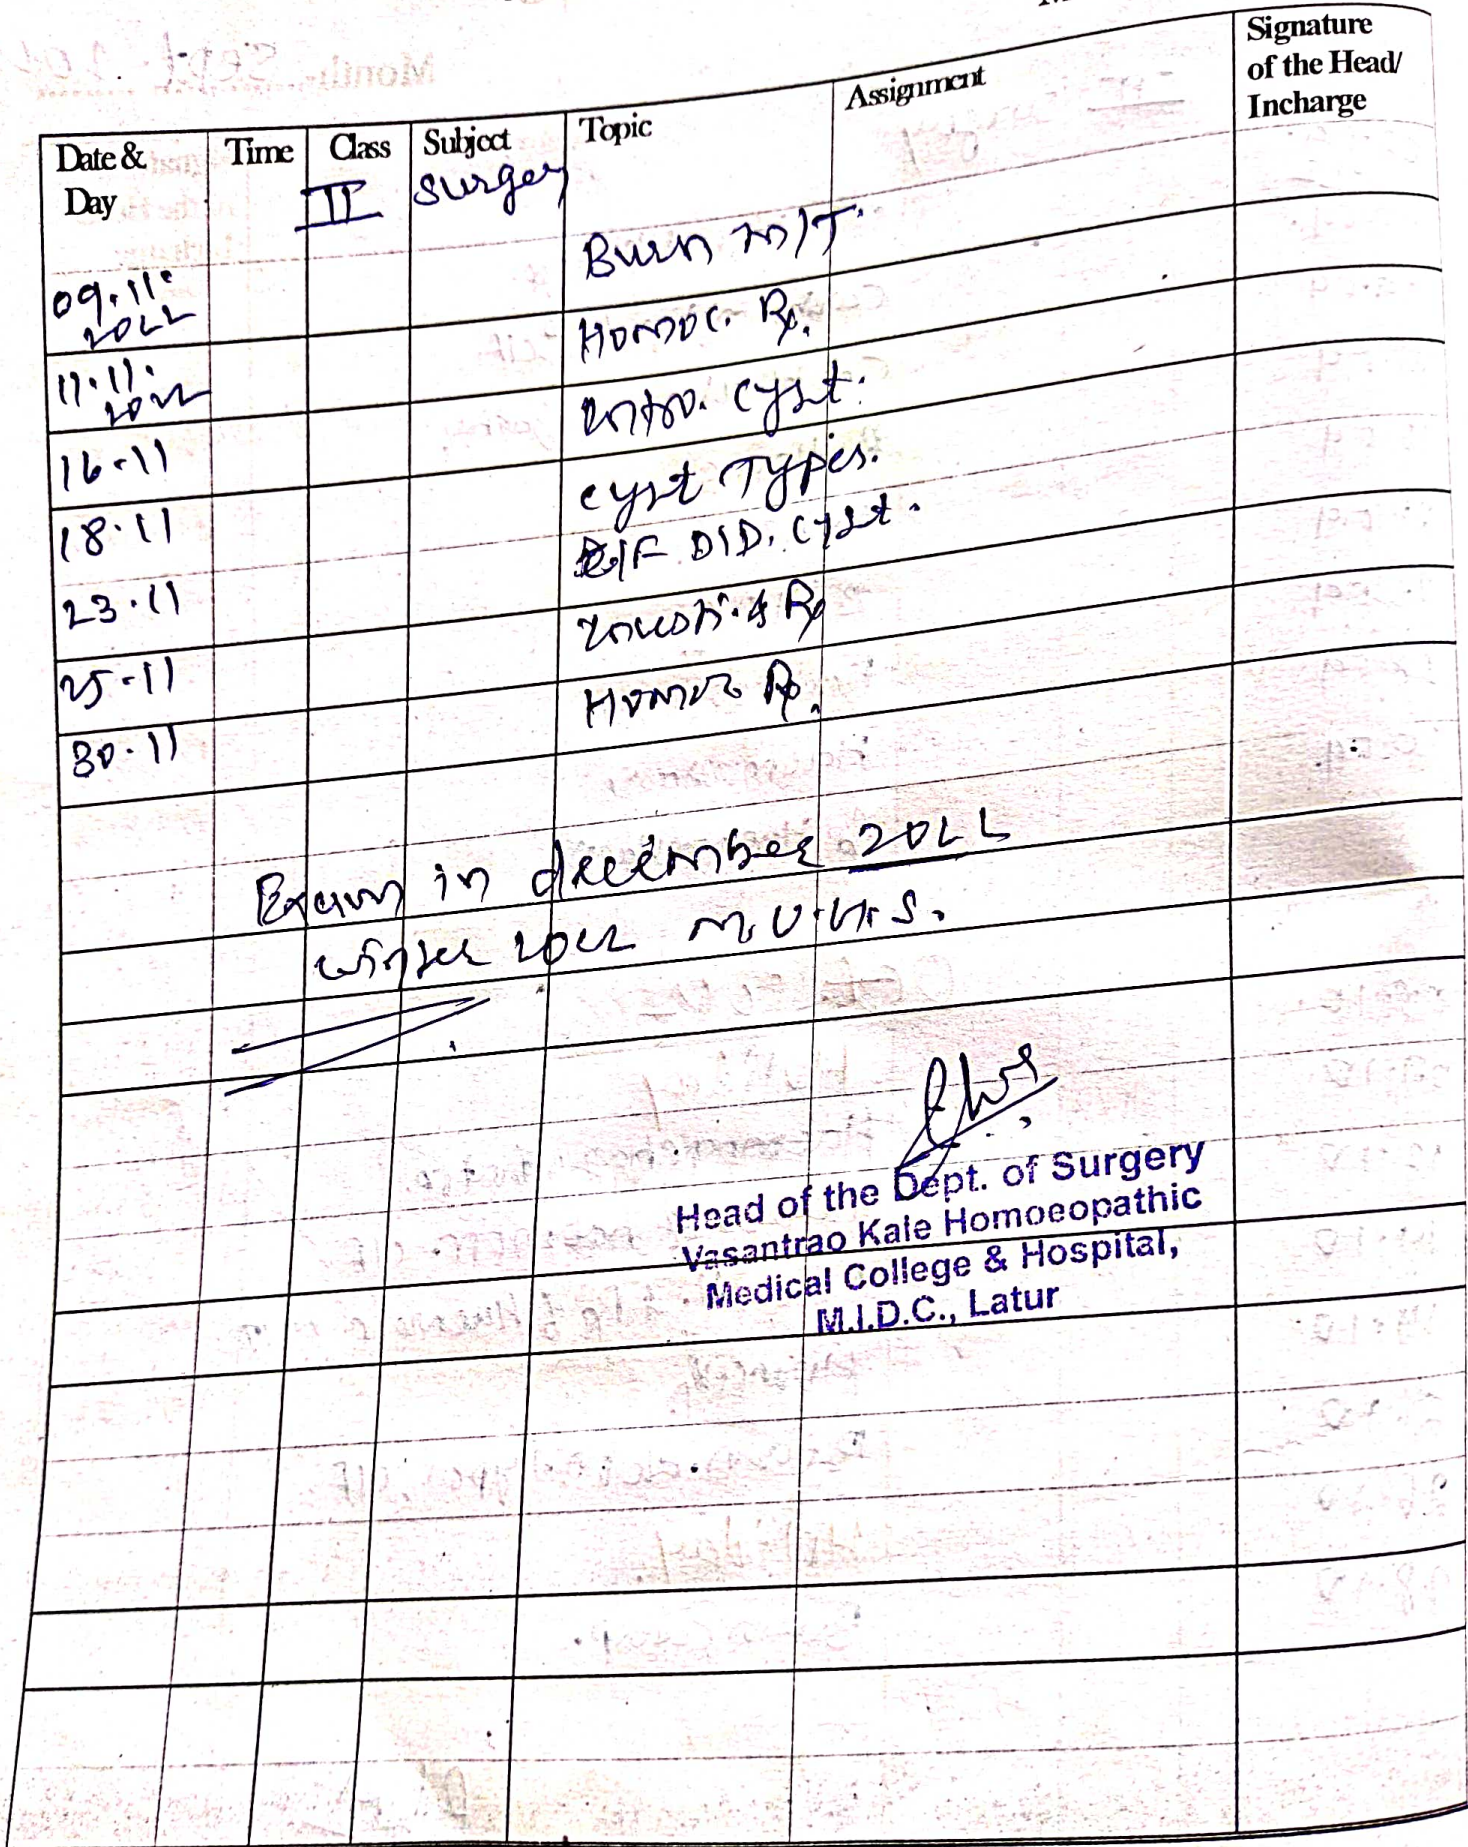 Date & Day Time Class Subject Topic Assignment Signature of the Head/ Incharge
II Surgery
09.11. 2022 Burn M/T.
11.11. 2022 Homoe. Rx.
16-11 Intro. Cyst.
18.11 Cyst Types.
23.11 C/F D/D. Cyst.
25-11 Investi. & Rx
30.11 Homoe Rx.
Exam in december 2022
winter 2022 M.U.H.S.
Head of the Dept. of Surgery
Vasantrao Kale Homoeopathic
Medical College & Hospital,
M.I.D.C., Latur